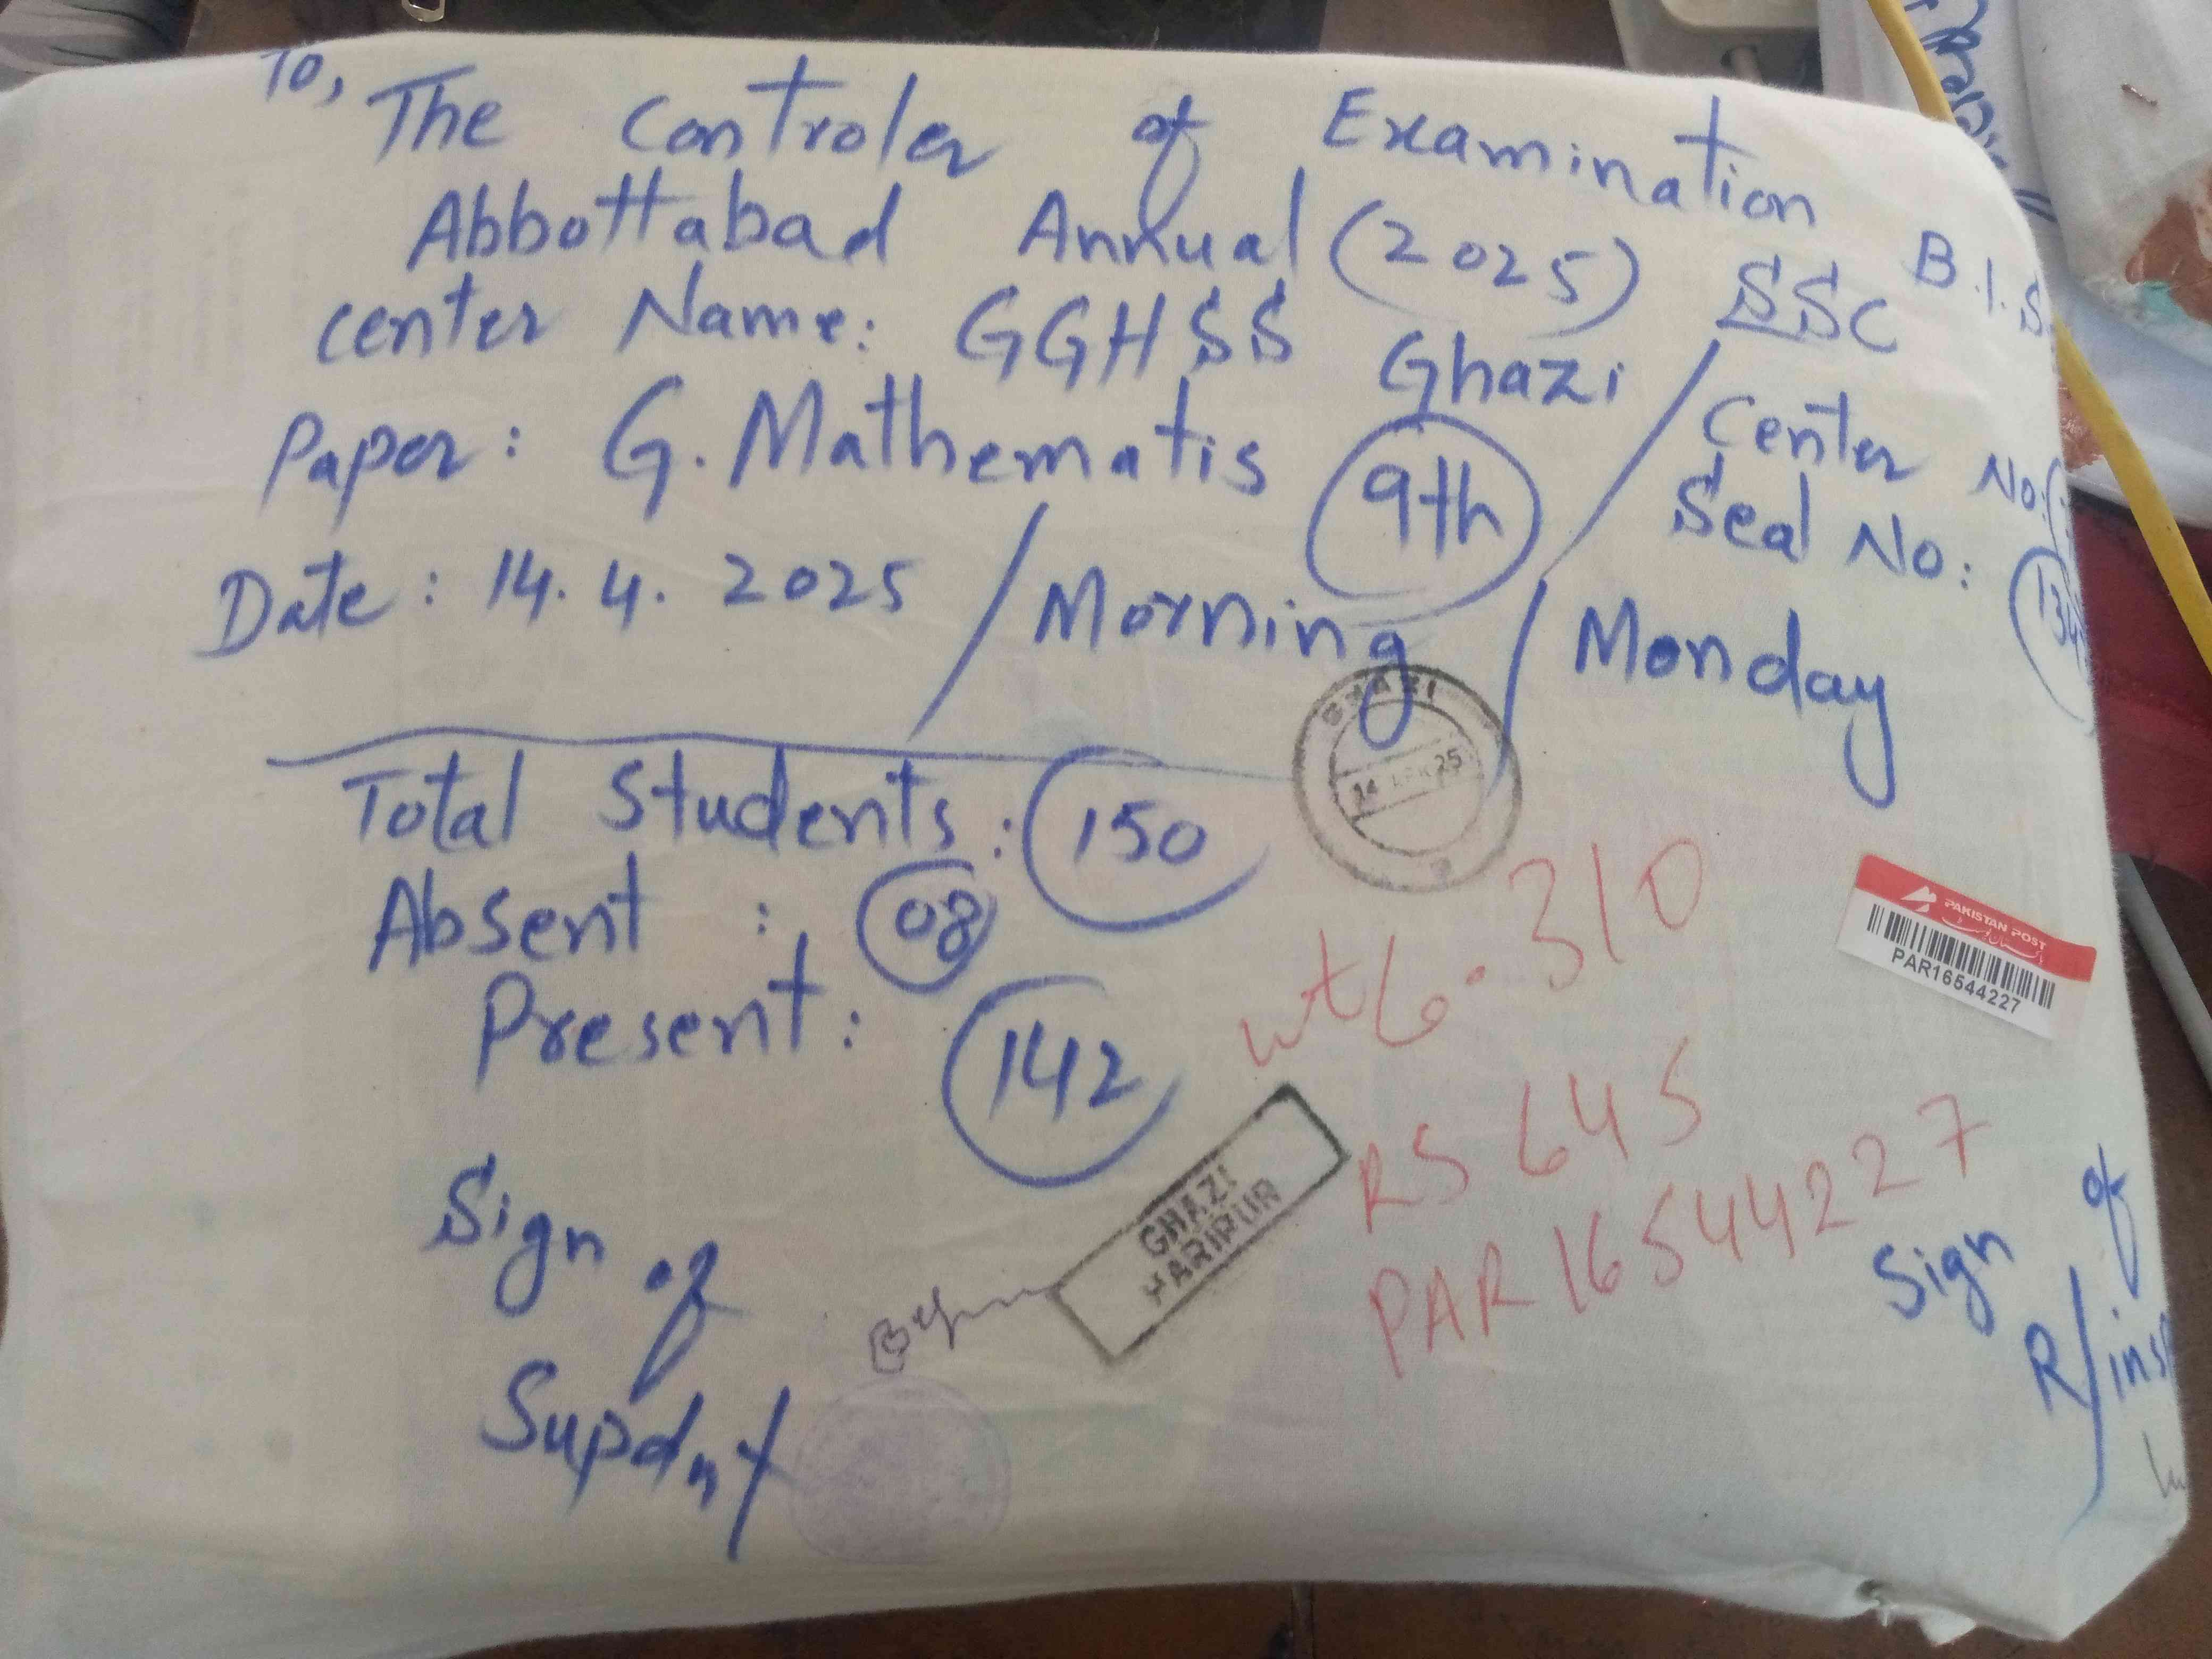 To,
The Controler of Examination B.I.S
Abbottabad Annual (2025) SSC
Center Name: GGHSS Ghazi
Center No:
Paper: G. Mathematis 9th
Seal No: 134
Date: 14.4.2025 / Morning / Monday
Total Students: 150
Absent : 08
Present: 142
GHAZI
14 APR 25
wt 6.310
RS 645
PAR16544227
PAKISTAN POST
PAR16544227
GHAZI
HARIPUR
Sign of
Supdnt
Sign of
R/insp